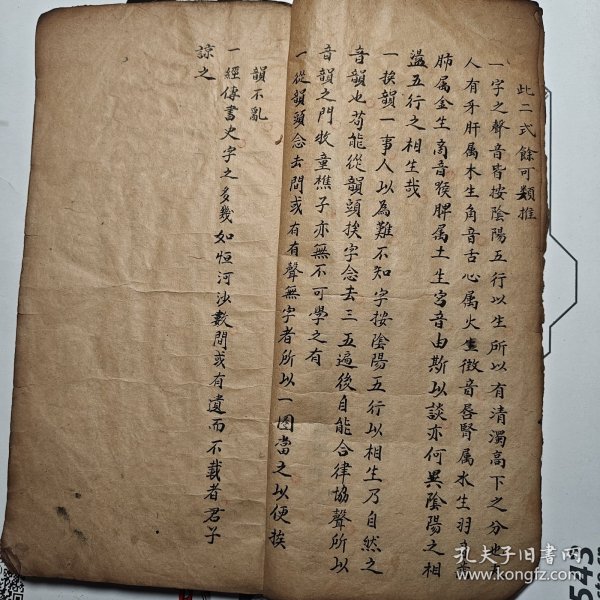 此二式餘可類推
一字之聲音皆按陰陽五行以生所以有清濁高下之分也
人有牙肝属木生角音舌心属火生徵音唇腎属水生羽
肺属金生商音喉脾属土生宮音由斯以談亦何異陰陽之相
盪五行之相生哉
一挨韻一事人以為難不知字按陰陽五行以相生乃自然之
音韻也苟能從韻頭挨字念去三五遍後自能合律協聲所以
音韻之門牧童樵子亦無不可學之有
一從韻頭念去間或有有聲無字者所以一圈當之以便挨
韻不亂
一經傳書史字之多幾如恒河沙數間或有遺而不載者君子
諒之
孔夫子旧书网
www.kongfz.com
545